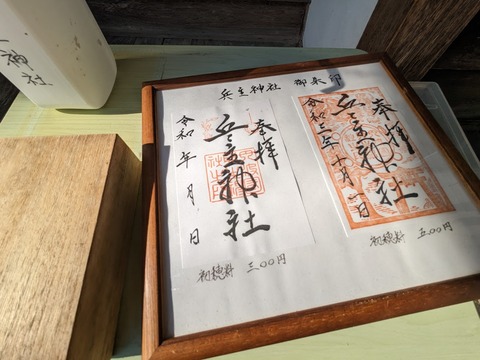 神社
兵主神社 御朱印
奉拝
兵主神社
令和 年 月 日
初穂料 三〇〇円
奉拝
兵主神社
令和三年十月一日
初穂料 五〇〇円